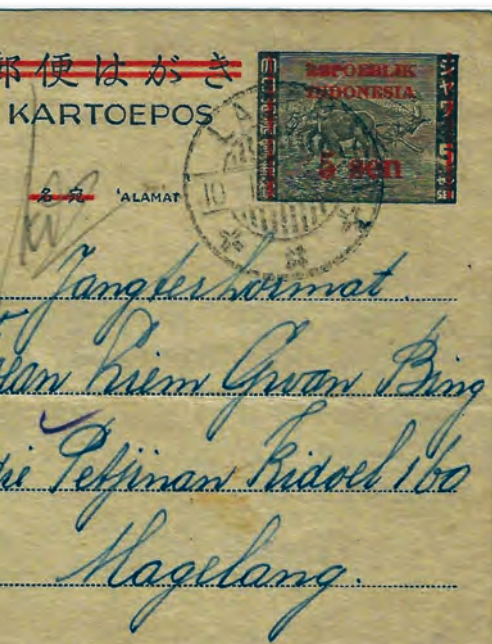 郵便はがき
KARTOEPOS
REPOEBLIK
INDONESIA
5 sen
名宛 'ALAMAT
Jang terhormat.
Liem Gwan Bing
Petjinan Kidoel 160
Magelang.